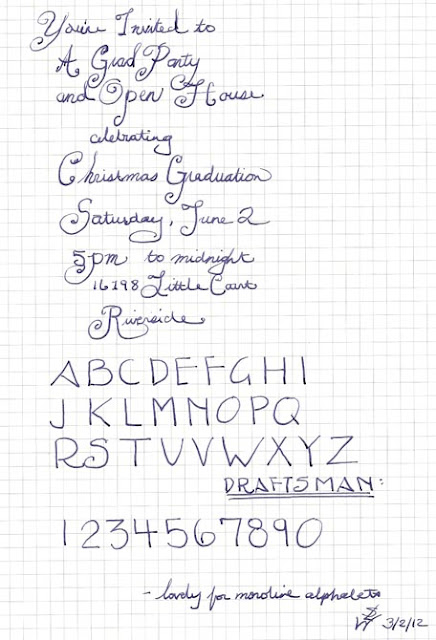 You're Invited to
A Grad Party
and Open House
celebrating
Christmas Graduation
Saturday, June 2
5pm to midnight
16198 Little Court
Riverside
ABCDEFGHI
JKLMNOPQ
RSTUVWXYZ
DRAFTSMAN:
1234567890
- lovely for monoline alphabets
3/2/12